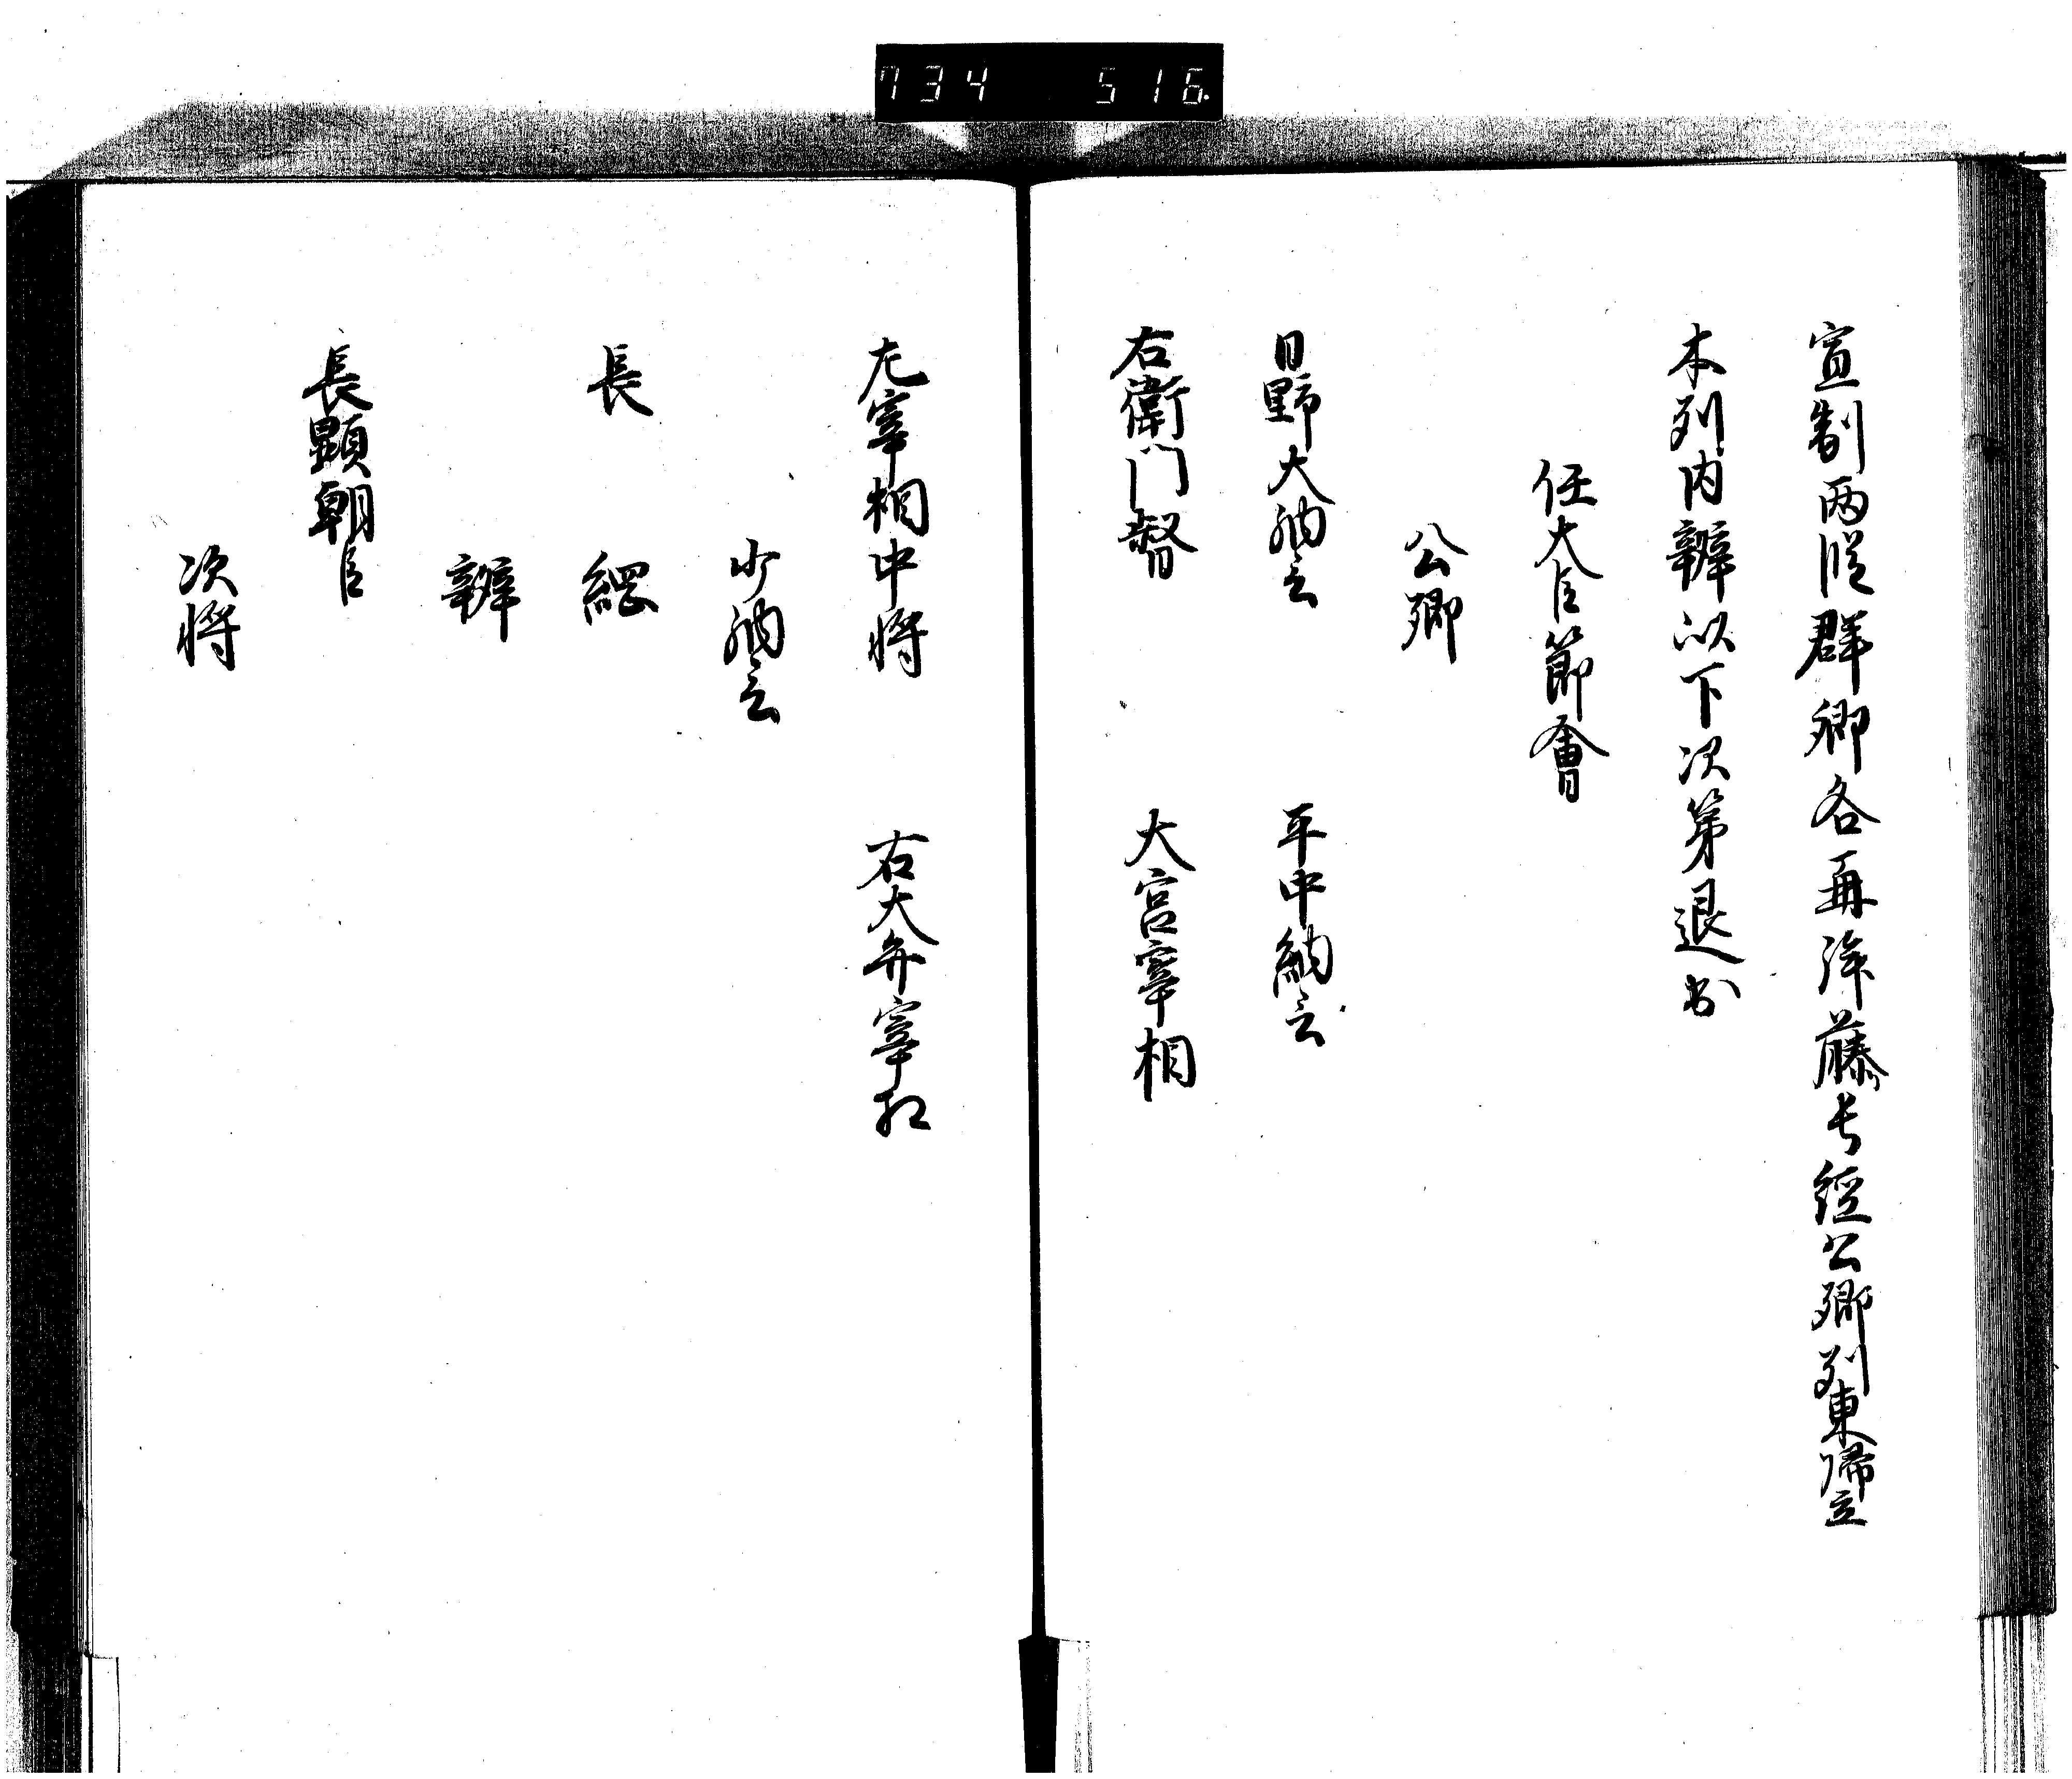 734 516
宣制両段群卿各再拝藤長経公卿列東帰立
本列内辨以下次第退出
任大臣節會
公卿
日野大納言 平中納言
右衛門督 大宮宰相
左宰相中将 右大弁宰相
少納言
長綱
辨
長顕朝臣
次将